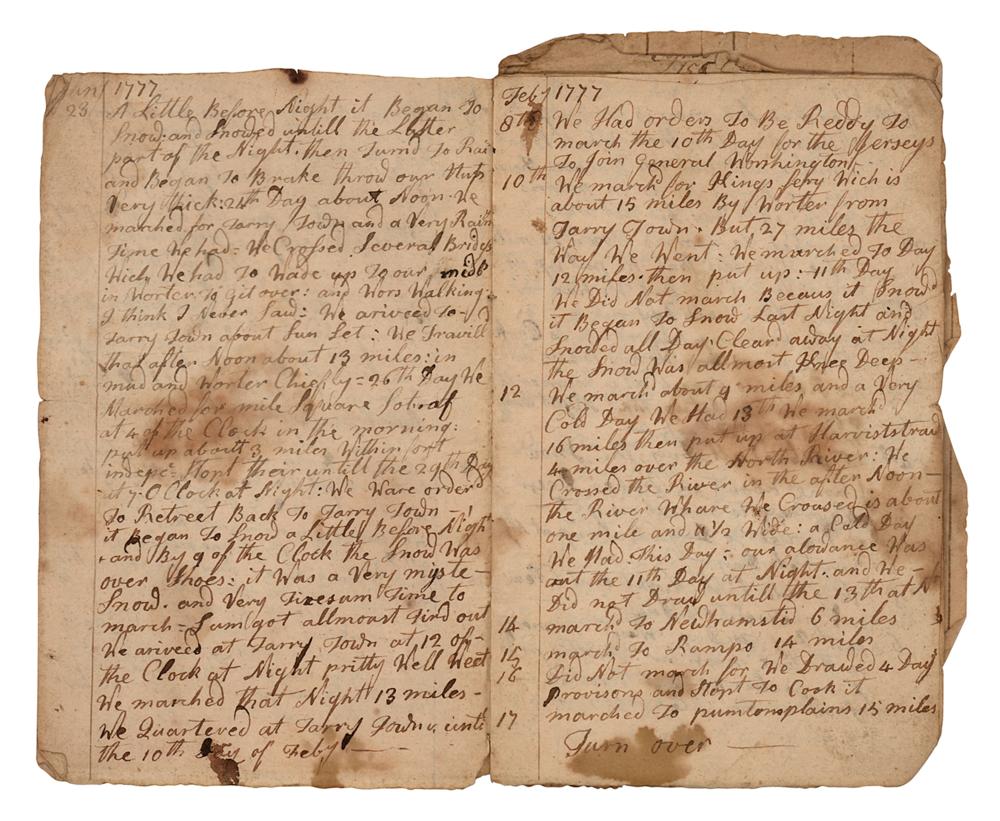 Jan 1777
23 A Little Before Night it Began To
Snow: and Snowed untill the Latter
part of the Night. then Turnd To Rain
and Began To Brake throw our Huts
Very thick: 24th Day about Noon. We
marched for Tarry Town and a Very Rain
Time We had: We Crossed Several Bridgs
Wich We had To Wade up To our midls
in Worter To Git over: and Wors Walking:
I think I Never Said: We ariveed To
Tarry Town about Sun Set: We Travill
that after Noon about 13 miles: in
mud and Worter Chiefly = 26th Day We
Marched for mile Square
at 4 of the Clock in the morning:
put up about 3 miles Within fort
indepe= Stopt their untill the 29th Day
at 7. O Clock at Night: We Ware orderd
To Retreet Back To Tarry Town -
it Began To Snow a Little Before Nigh
and By 9 of the Clock the Snow Was
over Shoes: it Was a Very myste-
Snow. and Very Tiresum Time to
march = Sum got allmoast Tird out
We ariveed at Tarry Town at 12 of-
the Clock at Night pritty Well Weet
We marched that Night 13 miles -
We Quartered at Tarry Town untill
the 10th Day of Feby
Feby 1777
8th We Had orders To Be Reddy To
march the 10th Day for the Jerseys
To Join General Worshington
10th We march for Kings fery Wich is
about 15 miles By Worter from
Tarry Town. But 27 miles the
Way We Went: We marched To Day
12 miles. then put up: 11th Day
We Did Not march Becaus it Snowd
it Began To Snow Last Night and
Snowed all Day: Cleard away at Night
the Snow Was allmost Knee Deep -
12 We march about 9 miles and a Very
Cold Day We Had 13th We march
16 miles then put up at Harviststraw
4 miles over the North River: We
Crossed the River in the after Noon -
the River Whare We Croused is about
one mile and 1/2 Wide: a Cold Day
We Had This Day: our alowance Was
out the 11th Day at Night. and We -
Did not Draw untill the 13th at N
14 march To Newhamstid 6 miles
15 march To Rampo 14 miles
16 Did Not march for We Drawed 4 Days
Provisons and Stopt To Cook it
17 marched To pumtonsplains 15 miles
Turn over